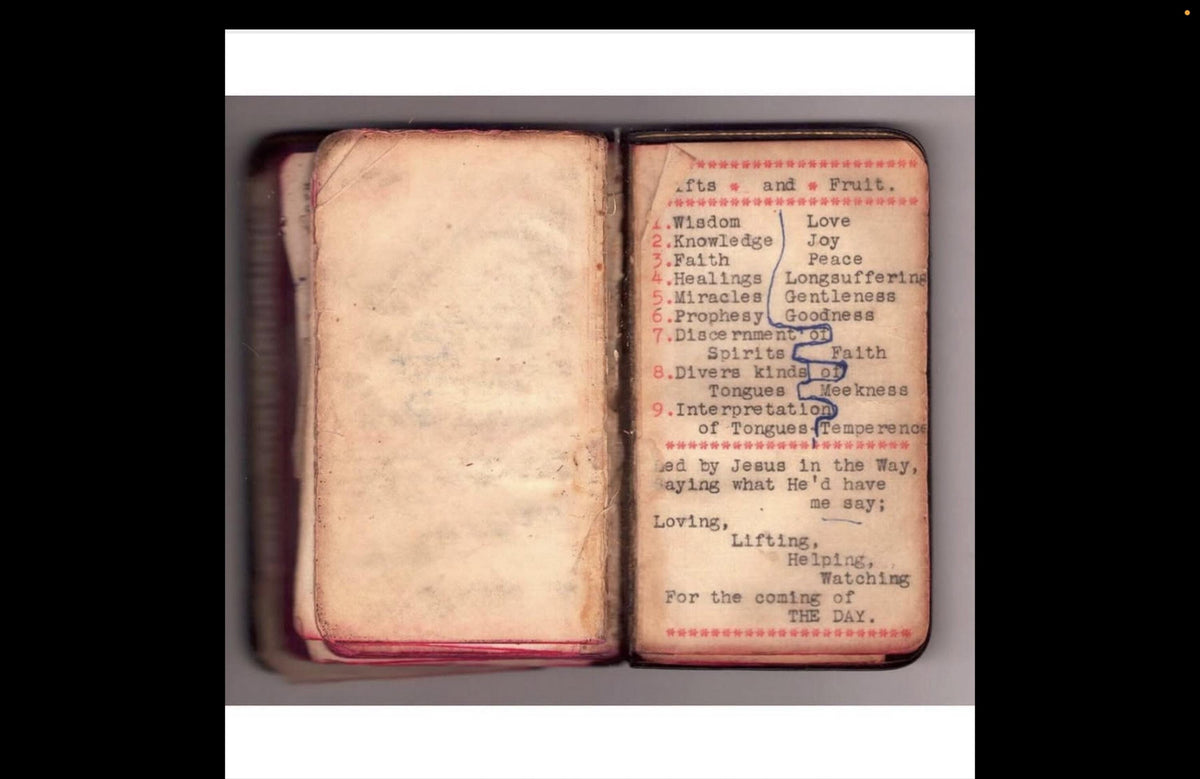 ifts * and * Fruit.
1.Wisdom Love
2.Knowledge Joy
3.Faith Peace
4.Healings Longsuffering
5.Miracles Gentleness
6.Prophesy Goodness
7.Discernment of
Spirits Faith
8.Divers kinds of
Tongues Meekness
9.Interpretation
of Tongues Temperence
Led by Jesus in the Way,
Saying what He'd have
me say;
Loving,
Lifting,
Helping,
Watching
For the coming of
THE DAY.